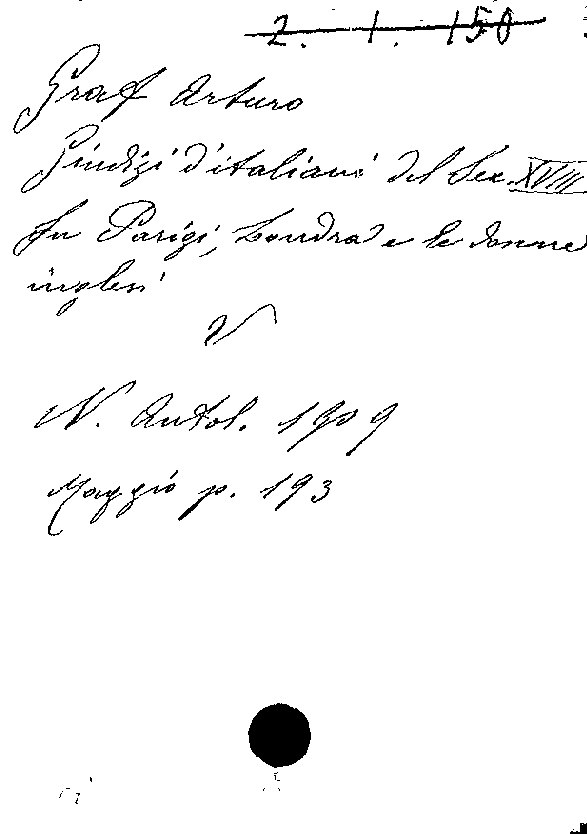 2. 1. 150
Graf Arturo
Giudizi d'italiani del Sec. XVIII
Su Parigi, Londra e le donne
inglesi
V
N. Antol. 1909
Maggio p. 193